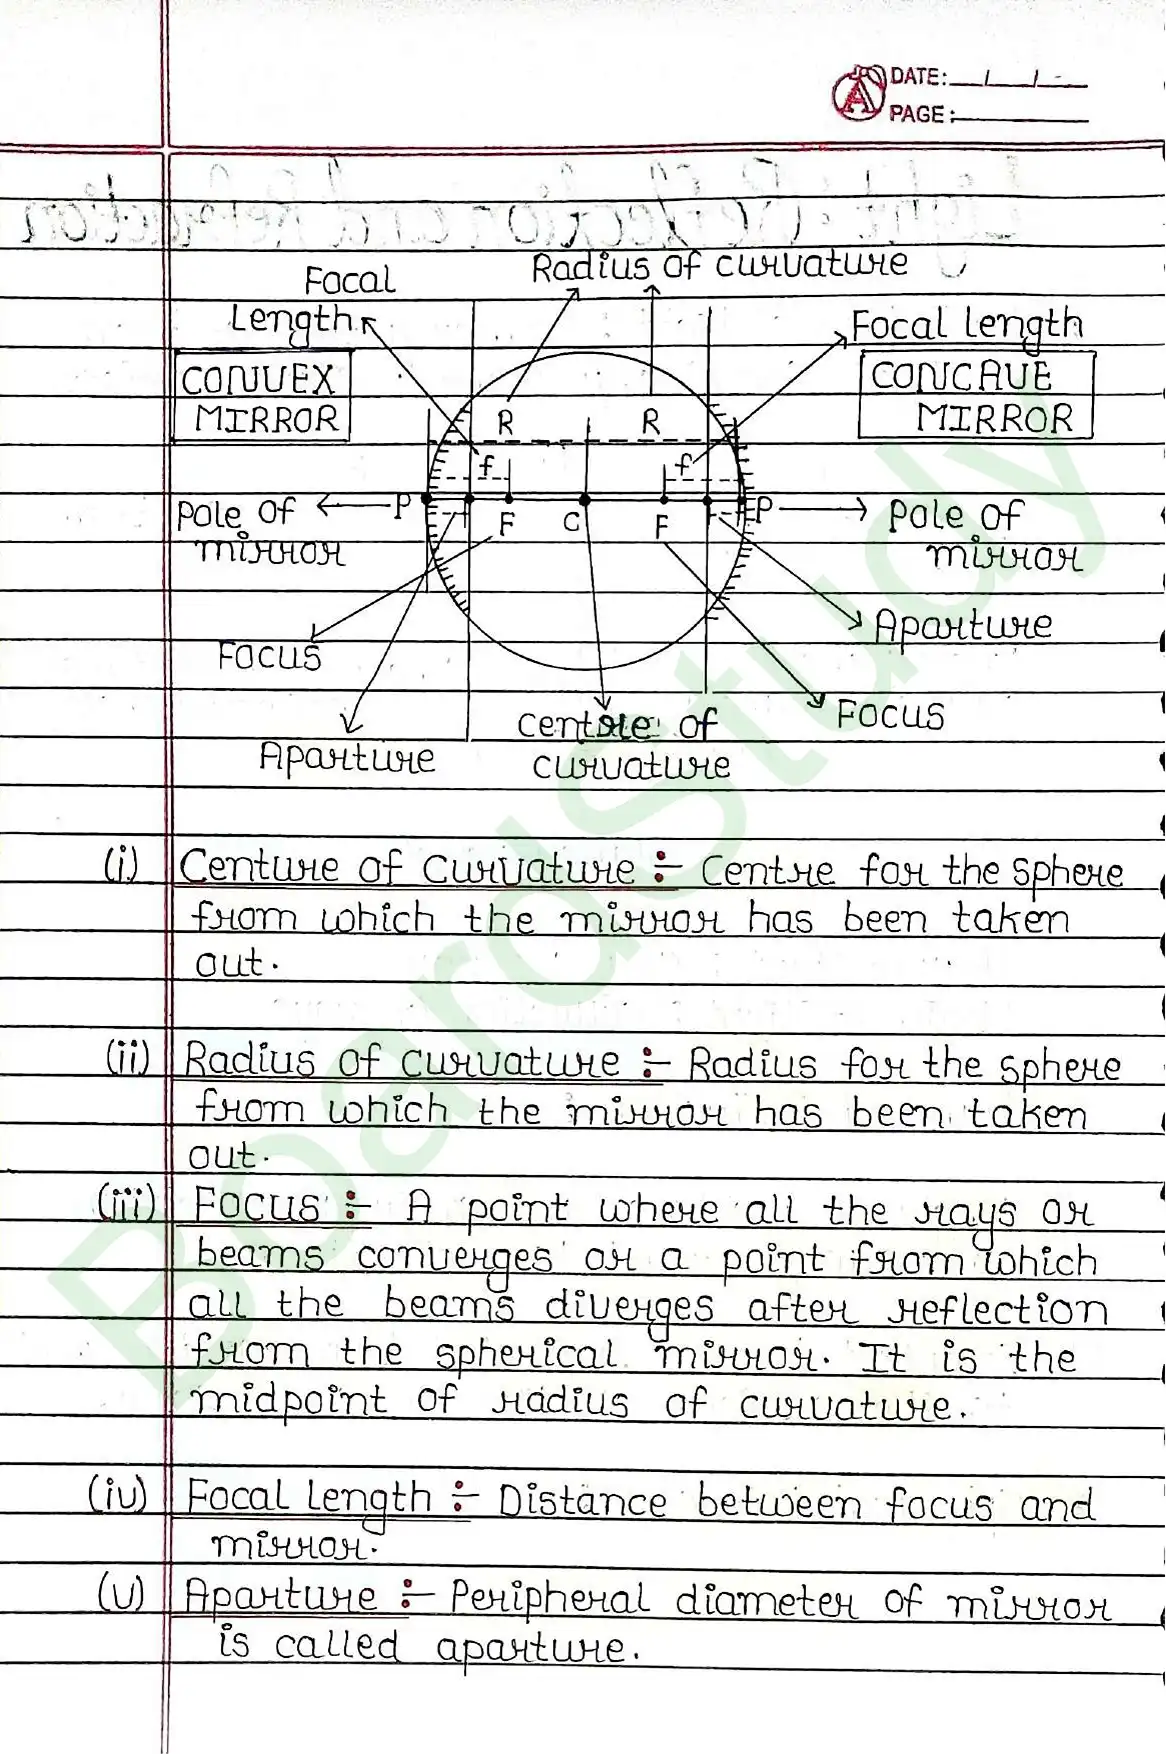 DATE: __/__/__
PAGE:
Radius of curvature
Focal
Length
Focal length
CONVEX
MIRROR
CONCAVE
MIRROR
R R
f f
P F C F P
Pole of
mirror
Pole of
mirror
Aparture
Focus
Focus
Centre of
curvature
Aparture
(i) Centure of Curvature :- Centre for the sphere
from which the mirror has been taken
out.
(ii) Radius of curvature :- Radius for the sphere
from which the mirror has been taken
out.
(iii) Focus :- A point where all the rays or
beams converges or a point from which
all the beams diverges after reflection
from the spherical mirror. It is the
midpoint of radius of curvature.
(iv) Focal Length :- Distance between focus and
mirror.
(v) Aparture :- Peripheral diameter of mirror
is called aparture.
BoardStudy